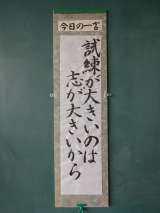 今日の一言
試練が大きいのは
志が大きいから